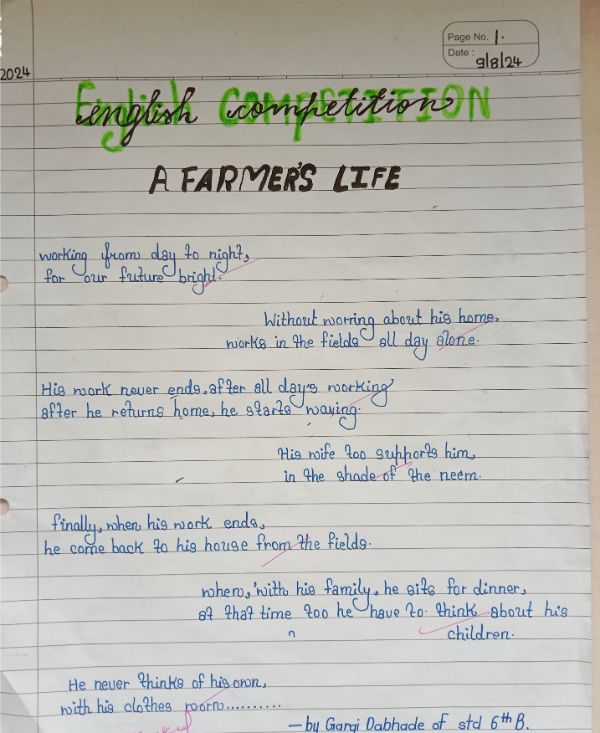 Page No. 1.
Date: 9/8/24
2024
English COMPETITION
english competition
A FARMER'S LIFE
working from day to night,
for our future bright.
Without worring about his home,
works in the fields all day alone.
His work never ends, after all day's working
after he returns home, he starts waying.
His wife too supports him,
in the shade of the neem.
finally, when his work ends,
he come back to his house from the fields.
when, with his family, he sits for dinner,
at that time too he have to think about his
children.
He never thinks of his own,
with his clothes worn..........
- by Gargi Dabhade of std 6th B.